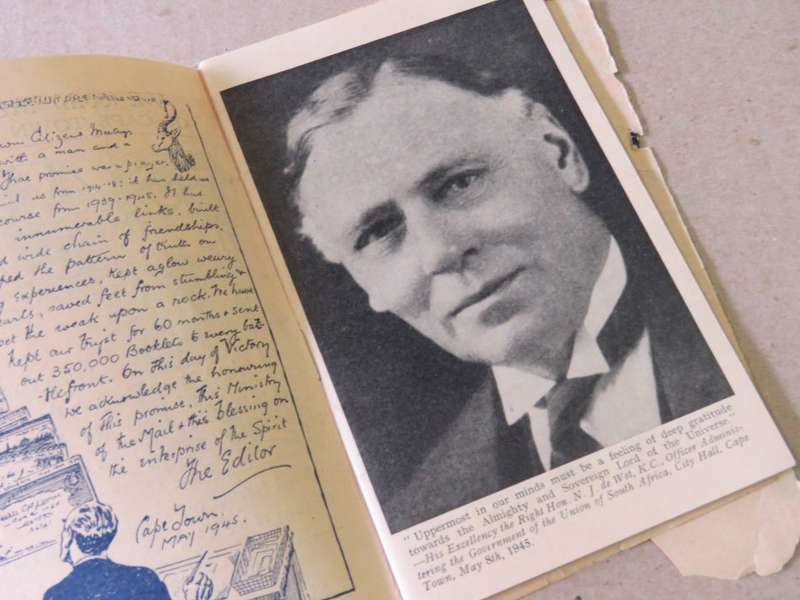 Citizens Meetup
with a man and a
promise was a prayer.
us from 1914-18: it has held us
course from 1939-1945. It has
innumerable links, built
wide chain of friendships,
the pattern of truth on
experiences, kept aglow weary
saved feet from stumbling &
set the weak upon a rock. We have
kept our trust for 60 months & sent
out 350,000 Booklets to every bat-
tlefront. On this day of Victory
we acknowledge the honouring
of this promise, this Ministry
of the Mail & this blessing on
the enterprise of the Spirit
The Editor
Cape Town.
MAY 1945.
"Uppermost in our minds must be a feeling of deep gratitude
towards the Almighty and Sovereign Lord of the Universe."
—His Excellency the Right Hon. N. J. de Wet, K.C., Officer Adminis-
tering the Government of the Union of South Africa, City Hall, Cape
Town, May 8th, 1945.